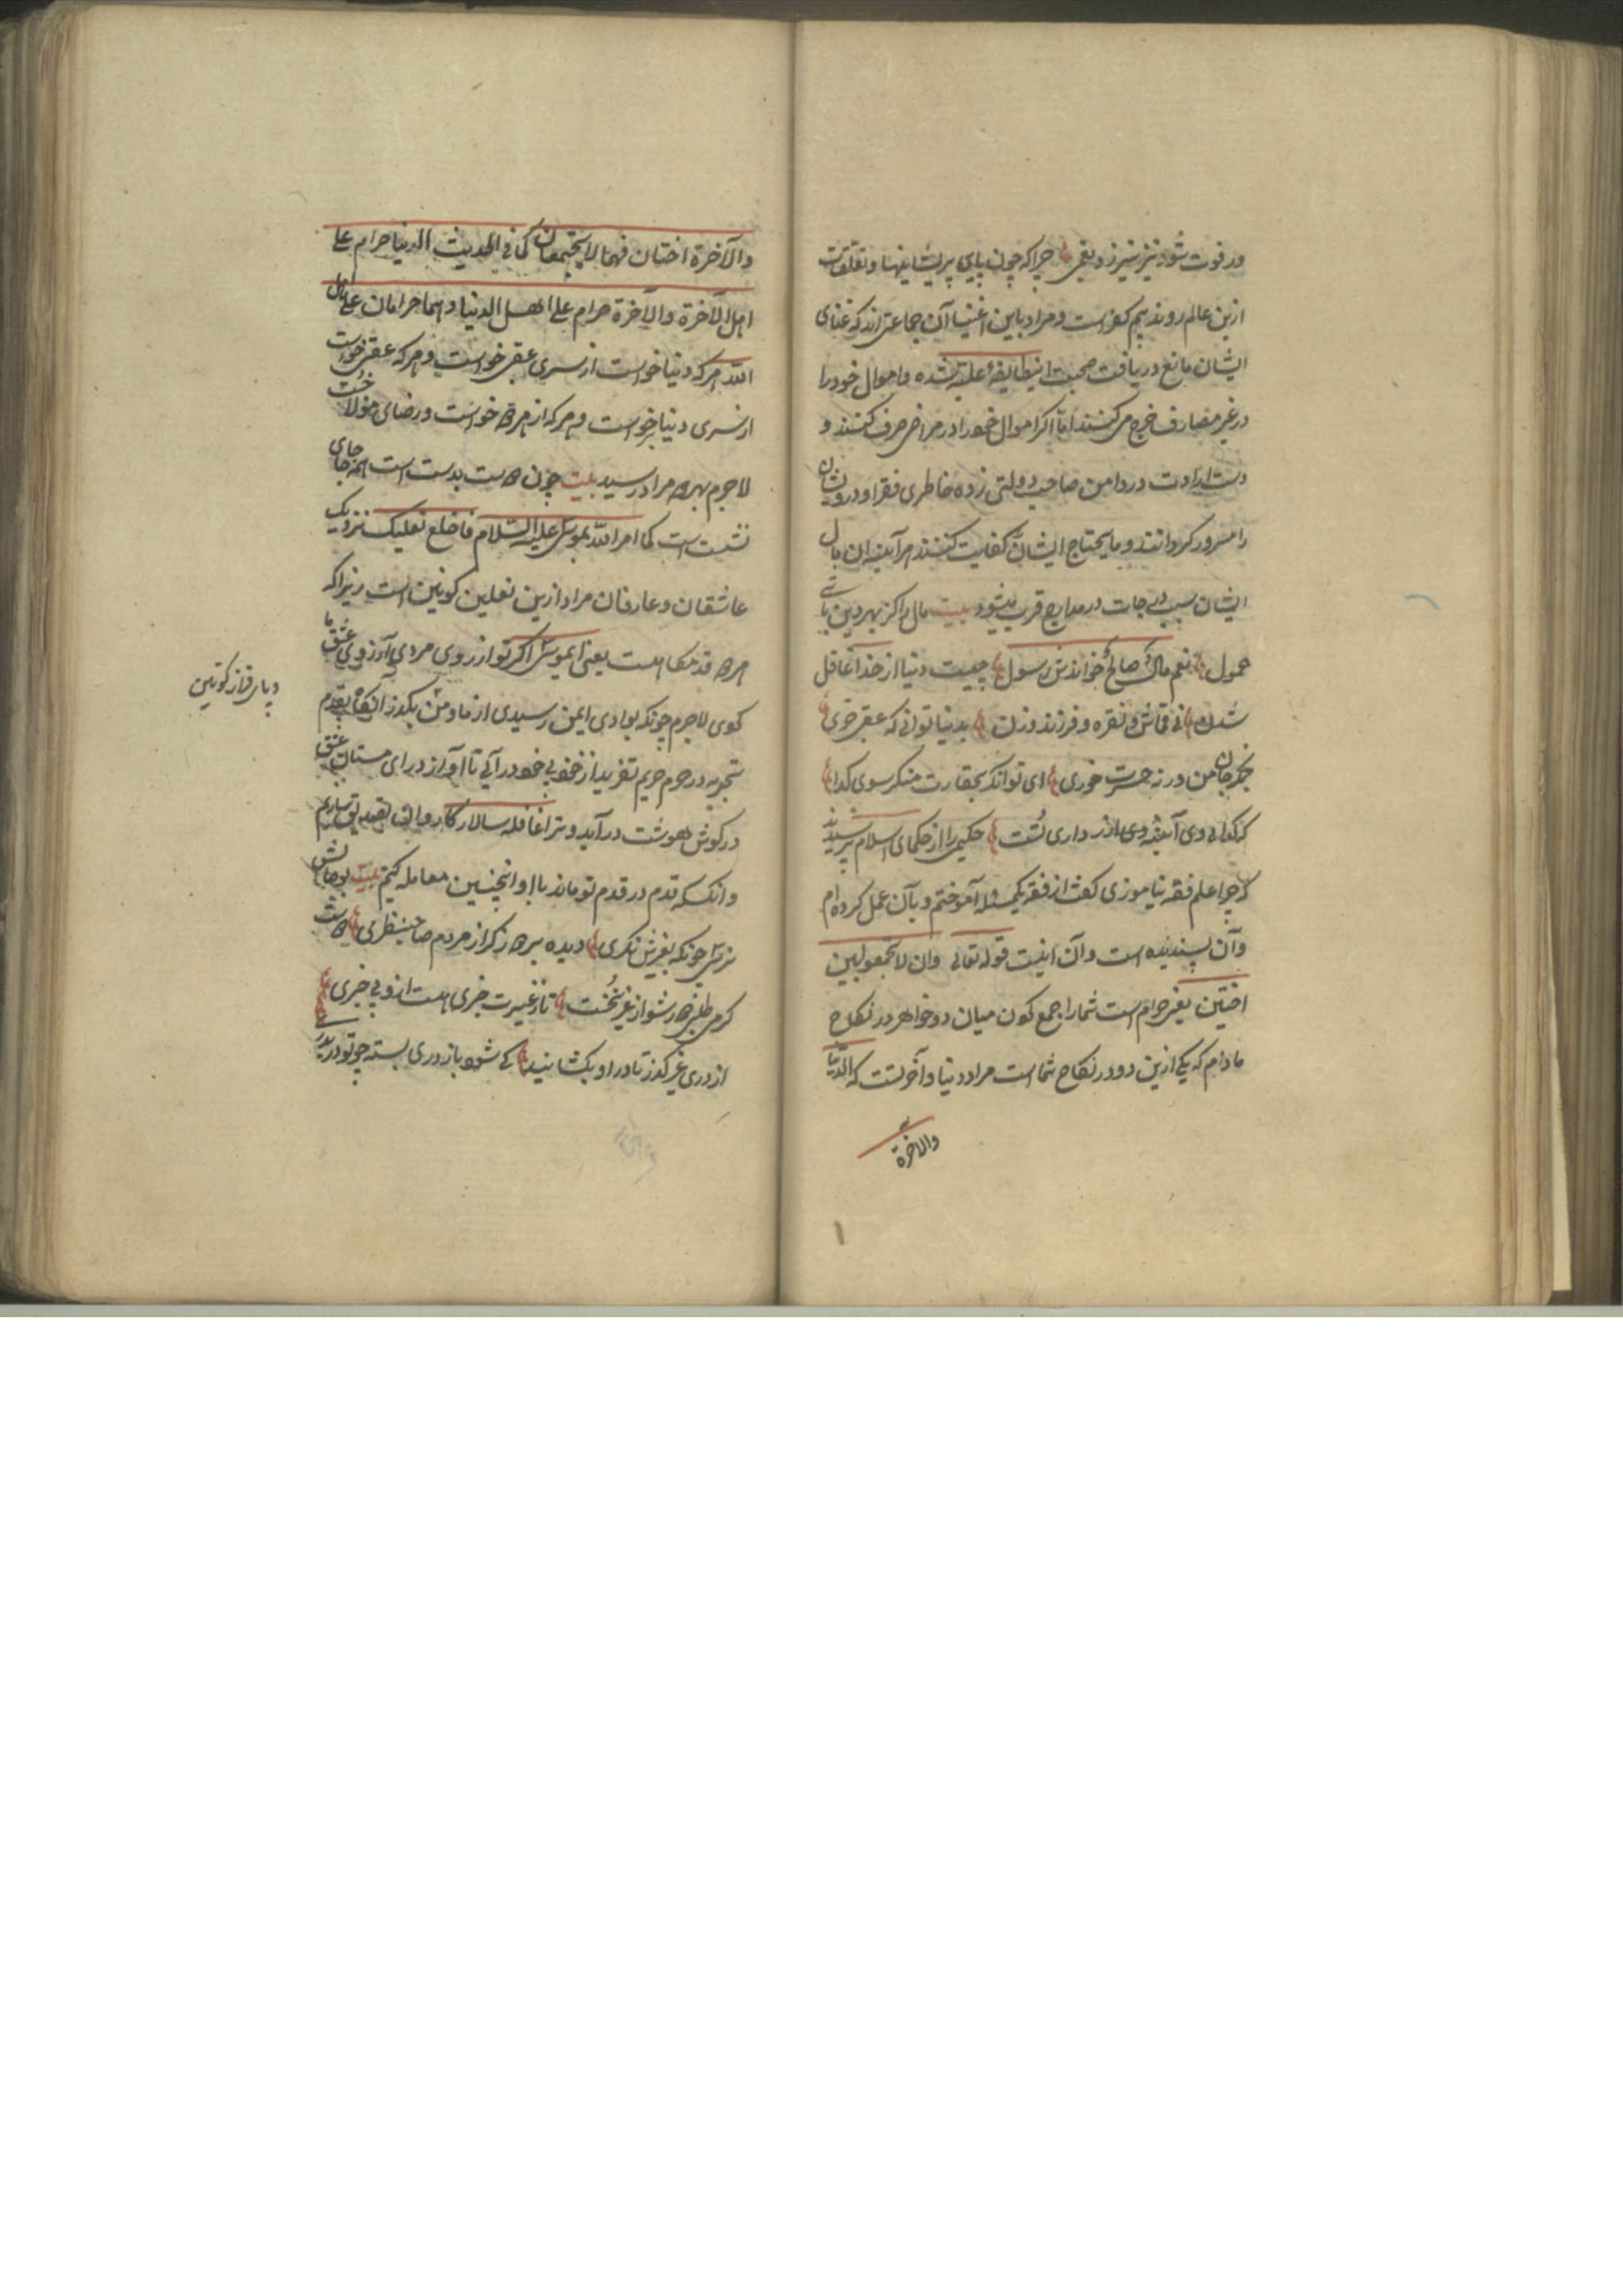 ور فوت شود نیز نیرزد بغمی چرا که چون بپای پریشانیها و تعلقات
ازین عالم روند بیم کفر است و مراد باین اغنیا آن جماعتی اند که غنای
ایشان مانع دریافت صحبت این طایفهٔ علیّه شده و اموال خود را
در غیر مصارف خرج می کنند امّا اگر اموال خود را در مراضی صرف کنند و
دست ارادت در دامن صاحب دولتی زده خاطری فقرا و درویشان
را مسرور گردانند و مایحتاج ایشان کفایت کنند هر آینه ان مال
ایشان سبب درجات در مدارج قرب میشود بیت مال را کز بهر دین باشی
حمول نعم مال صالح خواندش رسول چیست دنیا از خدا غافل
شدن نی قماش و نقره و فرزند و زن بدنیا توانی که عقبی خری
بخر جان من ورنه حسرت خوری ای توانگر بحقارت منکر سوی گدا
حکیمی را از حکمای اسلام پرسیدند
که چرا علم فقه نیاموزی گفت از فقه یک مسئله آموختم و بآن عمل کرده ام
و آن پسندیده است و آن اینست قوله تعالی وان لا تجمعوا بین
اختین یعنی حرام است شما را جمع کردن میان دو خواهر در نکاح
مادام که یکی ازین دو در نکاح شما است مراد دنیا و آخرتست که الدنیا
والاخرة
والآخرة اختان فهما لا یجتمعان کما فی الحدیث الدنیا حرام علی
اهل الآخرة والآخرة حرام علی اهل الدنیا و هما حرامان علی اهل
الله هر که دنیا خواست از سری عقبی خواست و هر که عقبی خواست
از سری دنیا خواست و هر که از هر دو خواست و رضای مولا جست
لاجرم بهر دو مراد رسید بیت چون دوست بدست است همه جای
نشست است کما امر الله بموسی علیه السلام فاخلع نعلیک نزدیک
عاشقان و عارفان مراد ازین نعلین کونین است زیرا که
هر دو قدمگاه است یعنی ای موسی اگر تو از روی مردی آرزوی عشق ما
کوی لاجرم چونکه بوادی ایمن رسیدی از ما و من بگذر آنگاه بقدم
و پای فراز کونین
تجرید در حرم حریم تفرید از خود بی خود درآی تا آواز درای مستان عشق
در گوش هوشت در آید و ترا قافله سالار کاروان تصدیق سازیم
و انکس که قدم در قدم تو ماند با او اینچنین معامله کنیم بیت
نرسی چونکه بغیرش نگری دیده بردوز گر از مردم صاحب نظری دوست
گر می طلبی دور شو از غیر نخست تا ز غیرت خبری هست ازو بی خبری
از دری غیر گذر تا در او بگشایند کی شود باز دری بسته چو تو دربدری